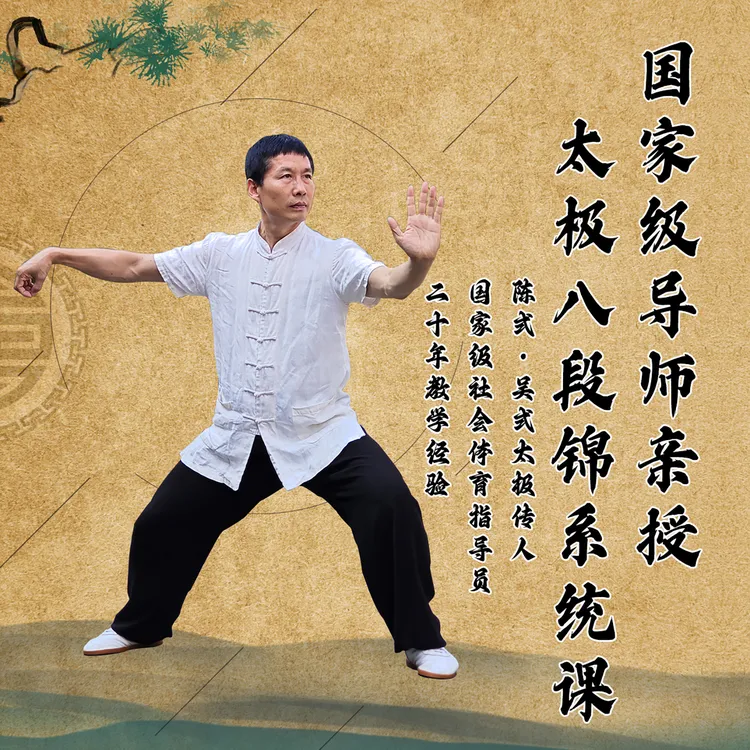 国家级导师亲授
太极八段锦系统课
陈式·吴式太极传人
国家级社会体育指导员
二十年教学经验